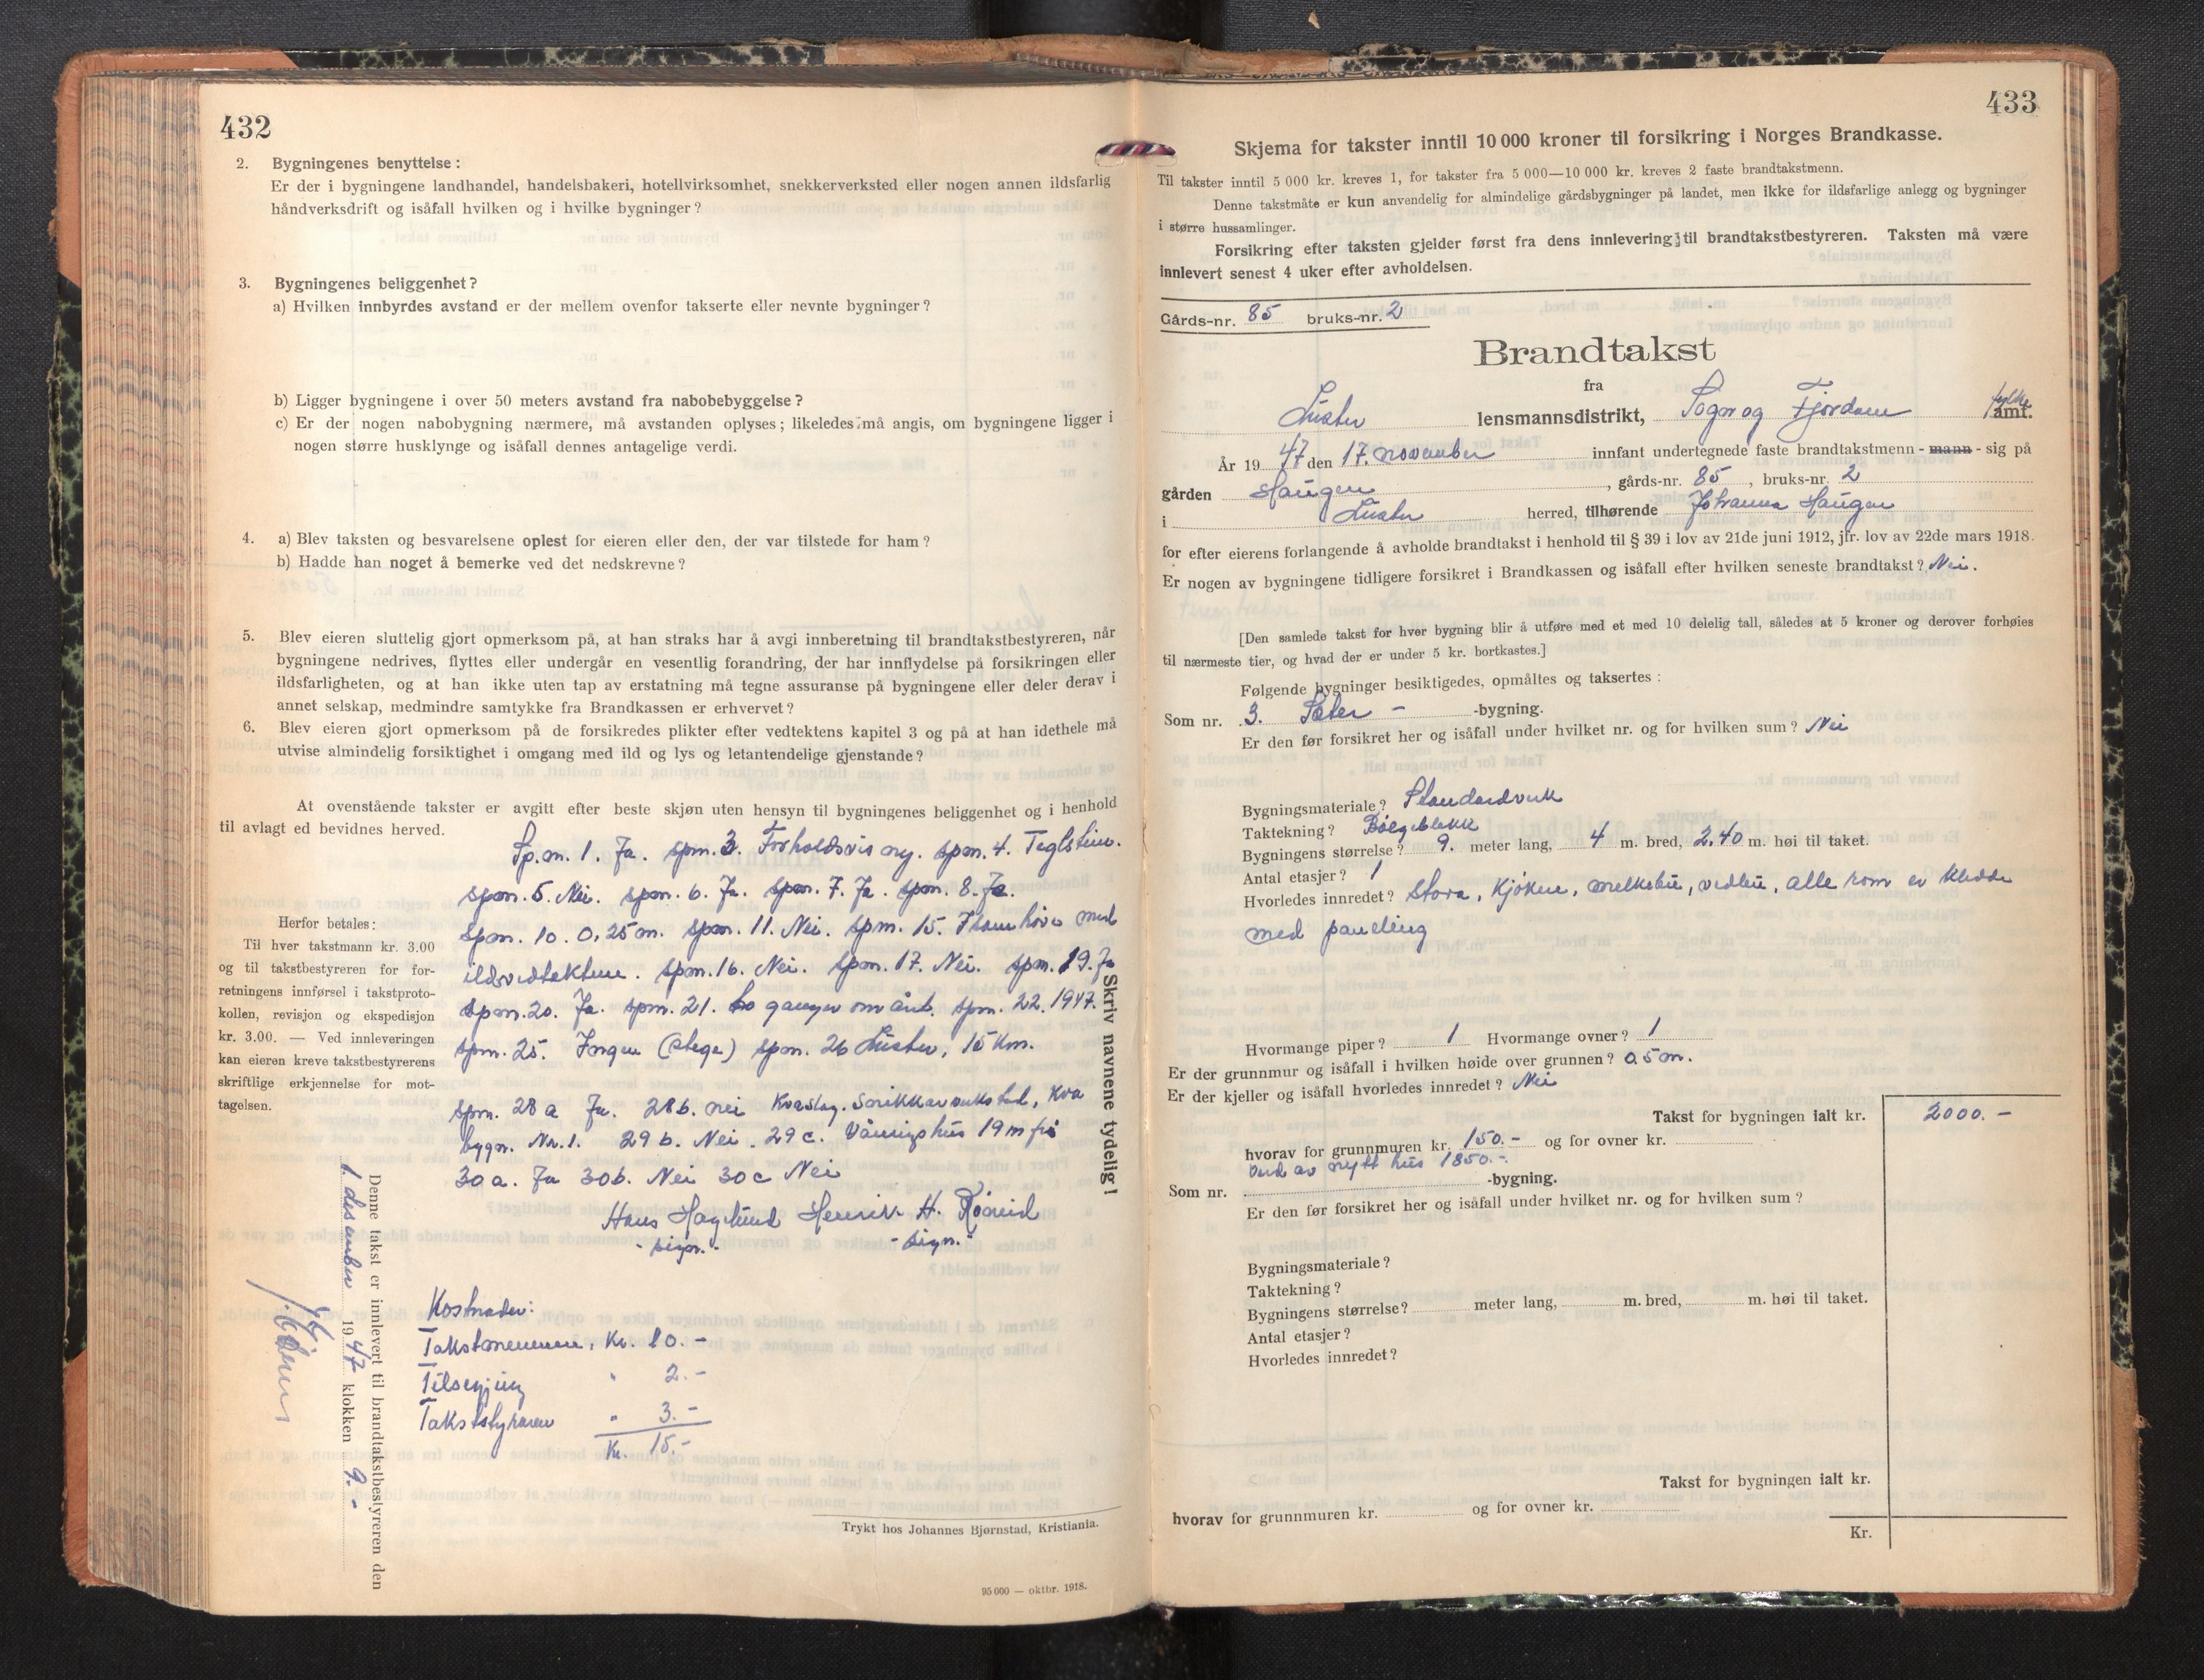 432
2. Bygningenes benyttelse:
Er der i bygningene landhandel, handelsbakeri, hotellvirksomhet, snekkerverksted eller nogen annen ildsfarlig
håndverksdrift og isåfall hvilken og i hvilke bygninger?
3. Bygningenes beliggenhet?
a) Hvilken innbyrdes avstand er der mellem ovenfor takserte eller nevnte bygninger?
b) Ligger bygningene i over 50 meters avstand fra nabobebyggelse?
c) Er der nogen nabobygning nærmere, må avstanden oplyses; likeledes må angis, om bygningene ligger i
nogen større husklynge og isåfall dennes antagelige verdi.
4. a) Blev taksten og besvarelsene oplest for eieren eller den, der var tilstede for ham?
b) Hadde han noget å bemerke ved det nedskrevne?
5. Blev eieren sluttelig gjort opmerksom på, at han straks har å avgi innberetning til brandtakstbestyreren, når
bygningene nedrives, flyttes eller undergår en vesentlig forandring, der har innflydelse på forsikringen eller
ildsfarligheten, og at han ikke uten tap av erstatning må tegne assuranse på bygningene eller deler derav i
annet selskap, medmindre samtykke fra Brandkassen er erhvervet?
6. Blev eieren gjort opmerksom på de forsikredes plikter efter vedtektens kapitel 3 og på at han idethele må
utvise almindelig forsiktighet i omgang med ild og lys og letantendelige gjenstande?
At ovenstående takster er avgitt efter beste skjøn uten hensyn til bygningenes beliggenhet og i henhold
til avlagt ed bevidnes herved.
Sp.m. 1. Ja. spm. 3. Forholdsvis ny. spm. 4. Teglstein.
spm. 5. Nei. spm. 6. Ja. spm. 7. Ja. spm. 8. Ja.
spm. 10. 0,25 m. spm. 11. Nei. spm. 15. med
spm. 16. Nei. spm. 17. Nei. spm. 19. Ja
spm. 20. Ja. spm. 21. to ganger om året. spm. 22. 1947.
spm. 25. Ingen (stega) spm. 26 Luster, 15 km.
spm. 28 a Ja. 28 b. nei
bygn. Nr. 1. 29 b. Nei. 29 c. Våningshus 19 m frå
30 a. Ja 30 b. Nei 30 c Nei
Hans Haglund Henrik H. Røneid
- sign. - - sign. -
Herfor betales:
Til hver takstmann kr. 3.00
og til takstbestyreren for for-
retningens innførsel i takstproto-
kollen, revisjon og ekspedisjon
kr. 3.00. — Ved innleveringen
kan eieren kreve takstbestyrerens
skriftlige erkjennelse for mot-
tagelsen.
Skriv navnene tydelig!
Denne takst er innlevert til brandtakstbestyreren den
1. desember 1947 klokken 9.-
Kostnader:
Takstmennene, Kr. 10.-
Tilsegjing " 2.-
Takststyraren " 3.-
Kr. 15.-
Trykt hos Johannes Bjørnstad, Kristiania.
95 000 — oktbr. 1918.
433
Skjema for takster inntil 10 000 kroner til forsikring i Norges Brandkasse.
Til takster inntil 5 000 kr. kreves 1, for takster fra 5 000—10 000 kr. kreves 2 faste brandtakstmenn.
Denne takstmåte er kun anvendelig for almindelige gårdsbygninger på landet, men ikke for ildsfarlige anlegg og bygninger
i større hussamlinger.
Forsikring efter taksten gjelder først fra dens innlevering til brandtakstbestyreren. Taksten må være
innlevert senest 4 uker efter avholdelsen.
Gårds-nr. 85 bruks-nr. 2
Brandtakst
fra
Luster lensmannsdistrikt, Sogn og Fjordane fylke amt.
År 1947 den 17. november innfant undertegnede faste brandtakstmenn - mann - sig på
gården Haugen, gårds-nr. 85, bruks-nr. 2
i Luster herred, tilhørende Johanna Haugen
for efter eierens forlangende å avholde brandtakst i henhold til § 39 i lov av 21de juni 1912, jfr. lov av 22de mars 1918.
Er nogen av bygningene tidligere forsikret i Brandkassen og isåfall efter hvilken seneste brandtakst? Nei.
[Den samlede takst for hver bygning blir å utføre med et med 10 delelig tall, således at 5 kroner og derover forhøies
til nærmeste tier, og hvad der er under 5 kr. bortkastes.]
Følgende bygninger besiktigedes, opmåltes og taksertes:
Som nr. 3. Sæter - -bygning.
Er den før forsikret her og isåfall under hvilket nr. og for hvilken sum? Nei
Bygningsmateriale? Standardverk
Taktekning? Bølgeblekk
Bygningens størrelse? 9. meter lang, 4 m. bred, 2.40 m. høi til taket.
Antal etasjer? 1
Hvorledes innredet? Stova, kjøken, melkebu, vedbu, alle rom er kledde
med paneling
Hvormange piper? 1 Hvormange ovner? 1
Er der grunnmur og isåfall i hvilken høide over grunnen? 0.5 m.
Er der kjeller og isåfall hvorledes innredet? Nei
Takst for bygningen ialt kr. 2000.-
hvorav for grunnmuren kr. 150.- og for ovner kr.
Verd av nytt hus 1850.-
Som nr. -bygning.
Er den før forsikret her og isåfall under hvilket nr. og for hvilken sum?
Bygningsmateriale?
Taktekning?
Bygningens størrelse? meter lang, m. bred, m. høi til taket.
Antal etasjer?
Hvorledes innredet?
Takst for bygningen ialt kr.
hvorav for grunnmuren kr. og for ovner kr.
Kr.